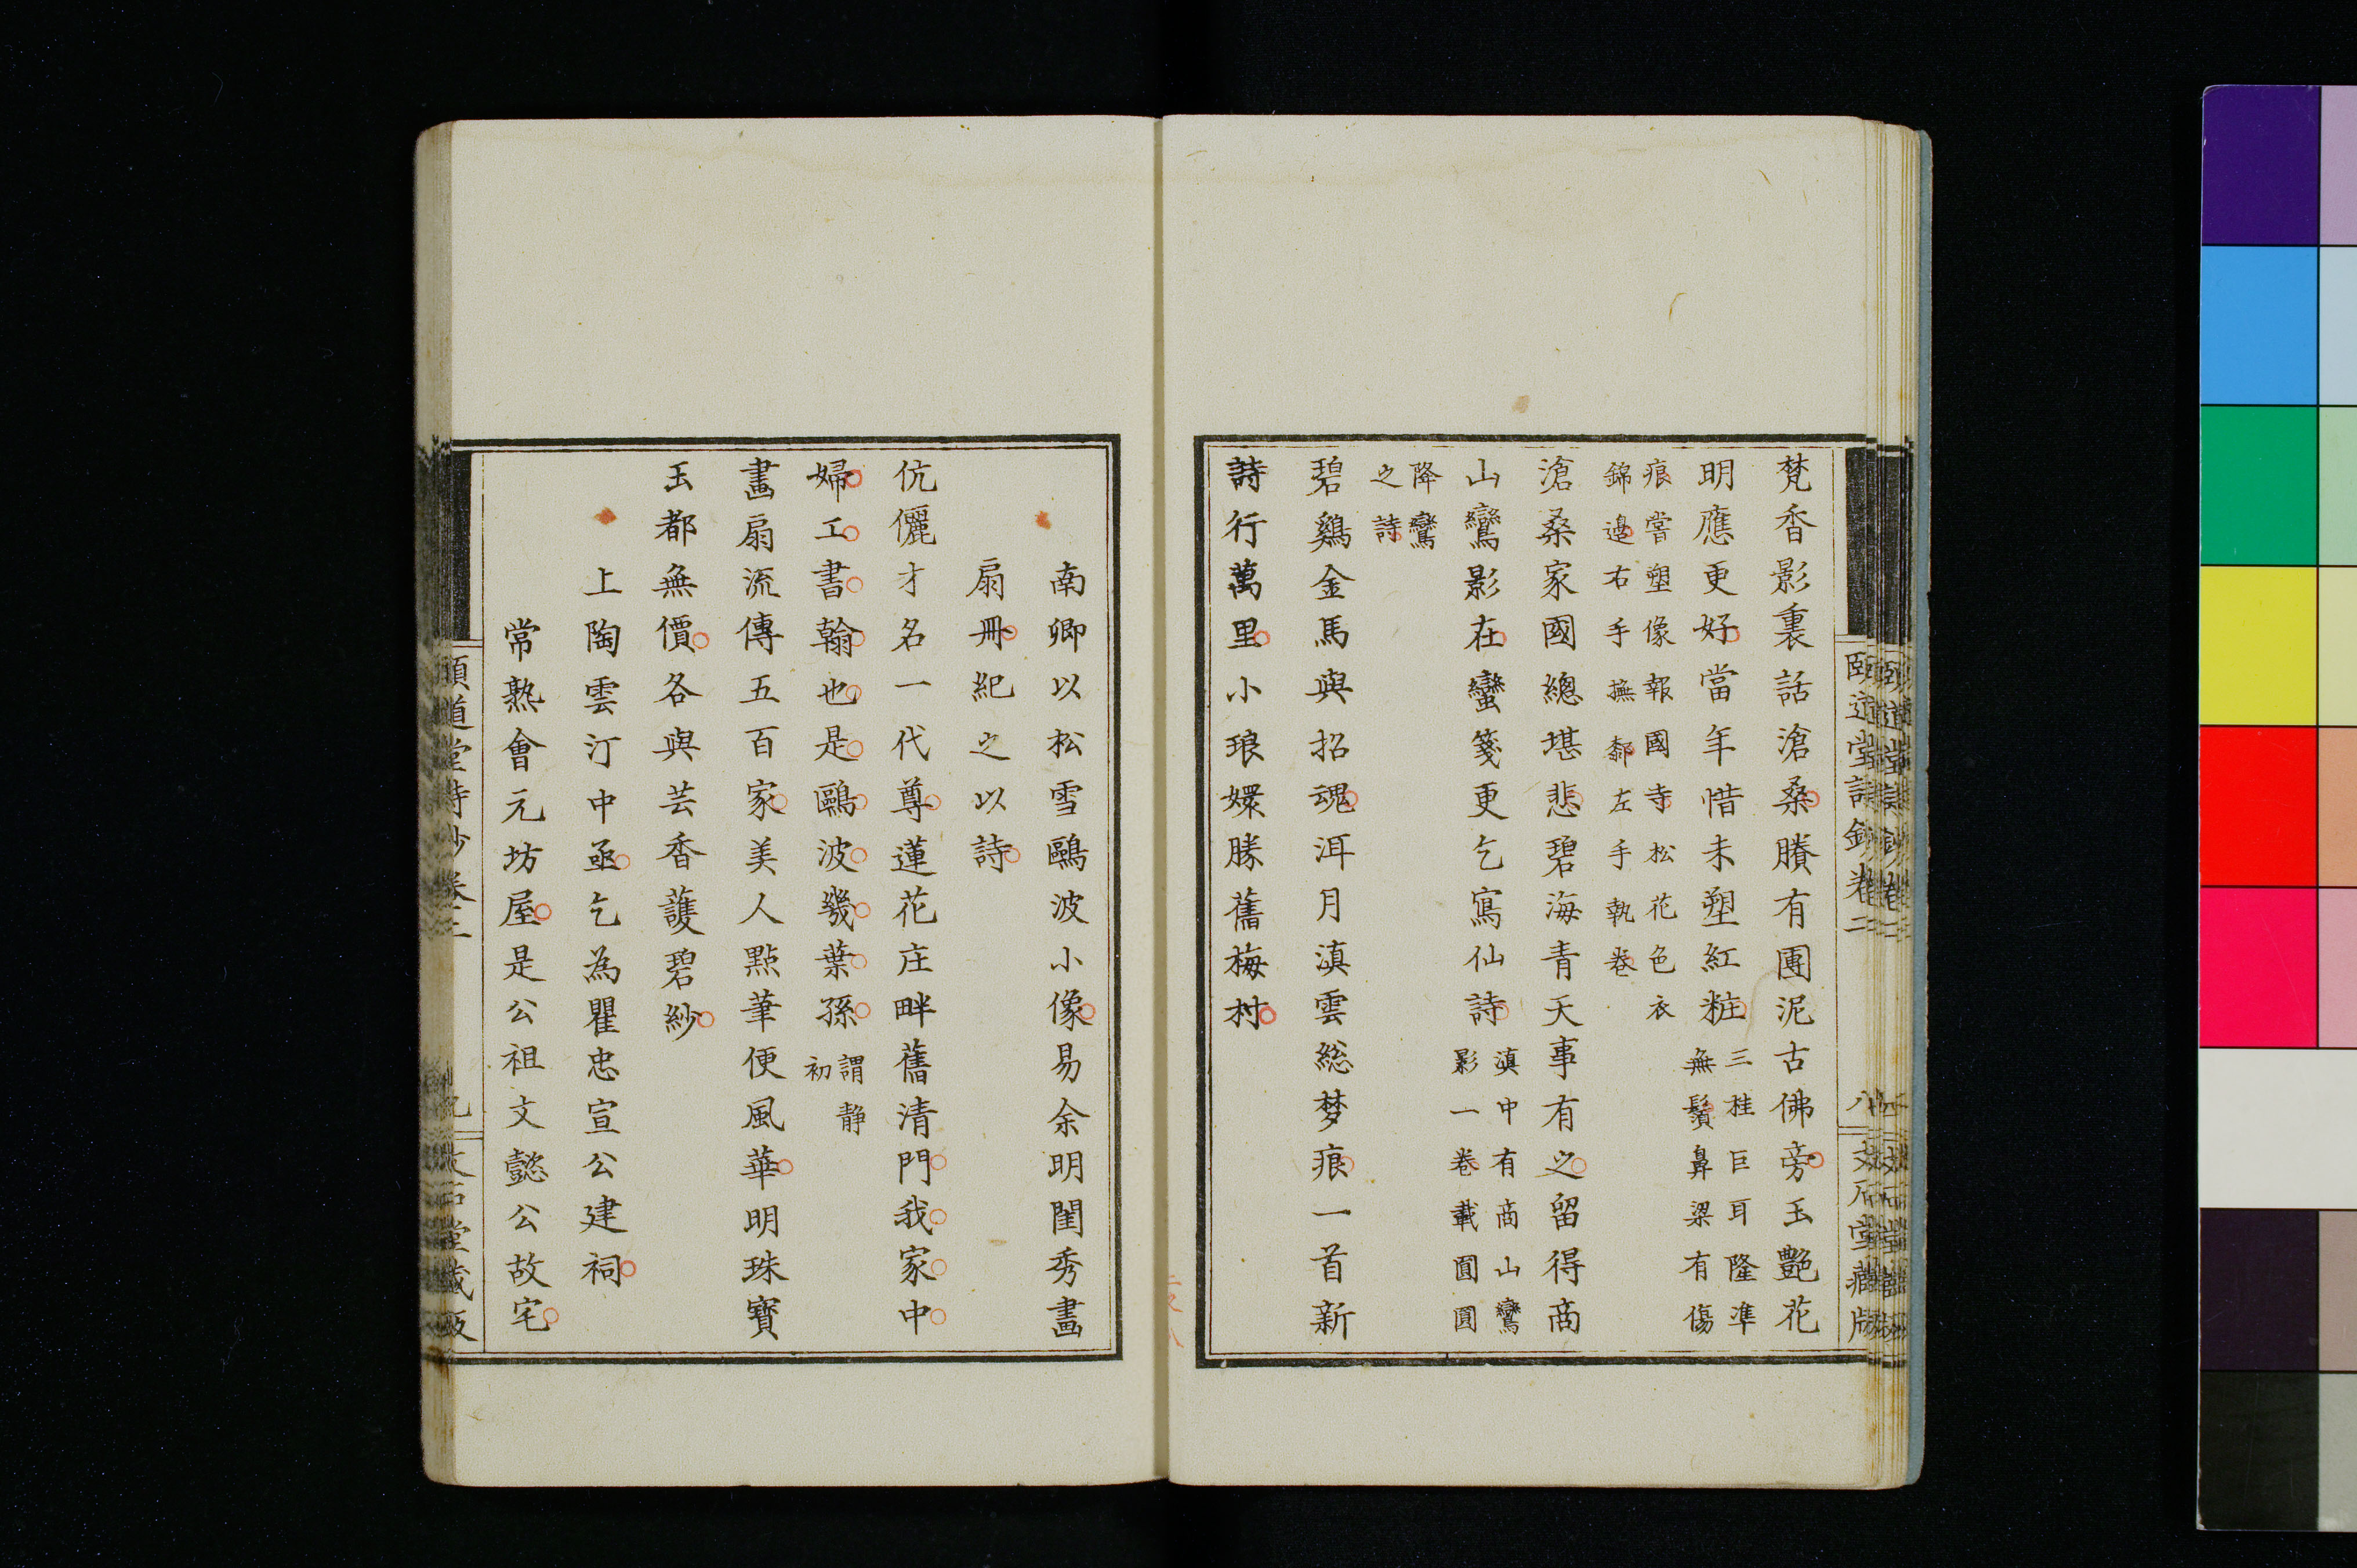 梵香影裏話滄桑賸有團泥古佛旁玉艷花
明應更好當年惜未塑紅粧三桂巨耳隆準
無鬚鼻梁有傷
痕嘗塑像報國寺松花色衣
錦邊右手撫郝左手執卷
滄桑家國總堪悲碧海青天事有之留得商
山鸞影在蠻箋更乞寫仙詩滇中有商山鸞
影一卷載圓圓
降鸞
之詩
碧鷄金馬與招魂洱月滇雲総梦痕一首新
詩行萬里小琅嬛勝舊梅村
頤道堂詩鈔卷二
八
文石堂藏版
南卿以松雪鷗波小像易余明閨秀畫
扇冊紀之以詩
伉儷才名一代尊蓮花庄畔舊清門我家中
婦工書翰也是鷗波幾葉孫謂静
初
畫扇流傳五百家美人點筆便風華明珠寳
玉都無價各與芸香護碧紗
上陶雲汀中丞乞為瞿忠宣公建祠
常熟會元坊屋是公祖文懿公故宅
頤道堂詩鈔卷二
九
文石堂藏版